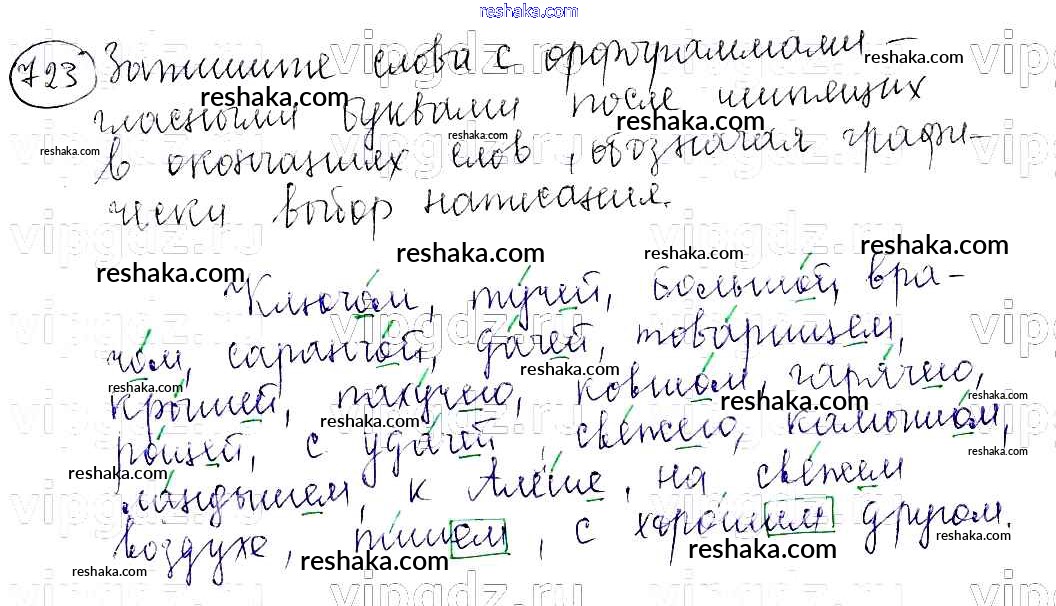 reshaka.com
723 Запишите слова с орфограммами –
гласными буквами после шипящих
в окончаниях слов, обозначая графи-
чески выбор написания.
Ключом, тучей, большой, вра-
чом, саранчой, дачей, товарищем,
крышей, пахучего, ковшом, гарячего,
рощей, с удачей, свежего, камышом,
ландышем, к Алёше, на свежем
воздухе, пишем, с хорошим другом.